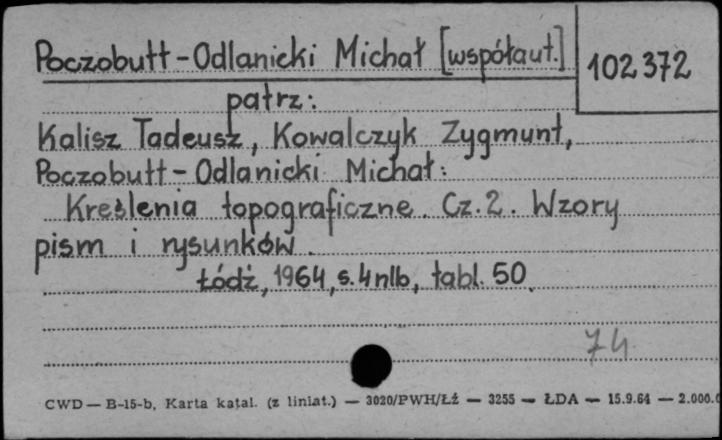 Poczobutt-Odlanicki Michał [współaut.]
102372
patrz:
Kalisz Tadeusz, Kowalczyk Zygmunt,
Poczobutt-Odlanicki Michał:
Kreślenia topograficzne. Cz.2. Wzory
pism i rysunków.
Łódź, 1964, s.4nlb, tabl. 50.
74
CWD — B-15-b, Karta katal. (z liniat.) — 3020/PWH/Łź — 3255 — ŁDA — 15.9.64 — 2.000.0